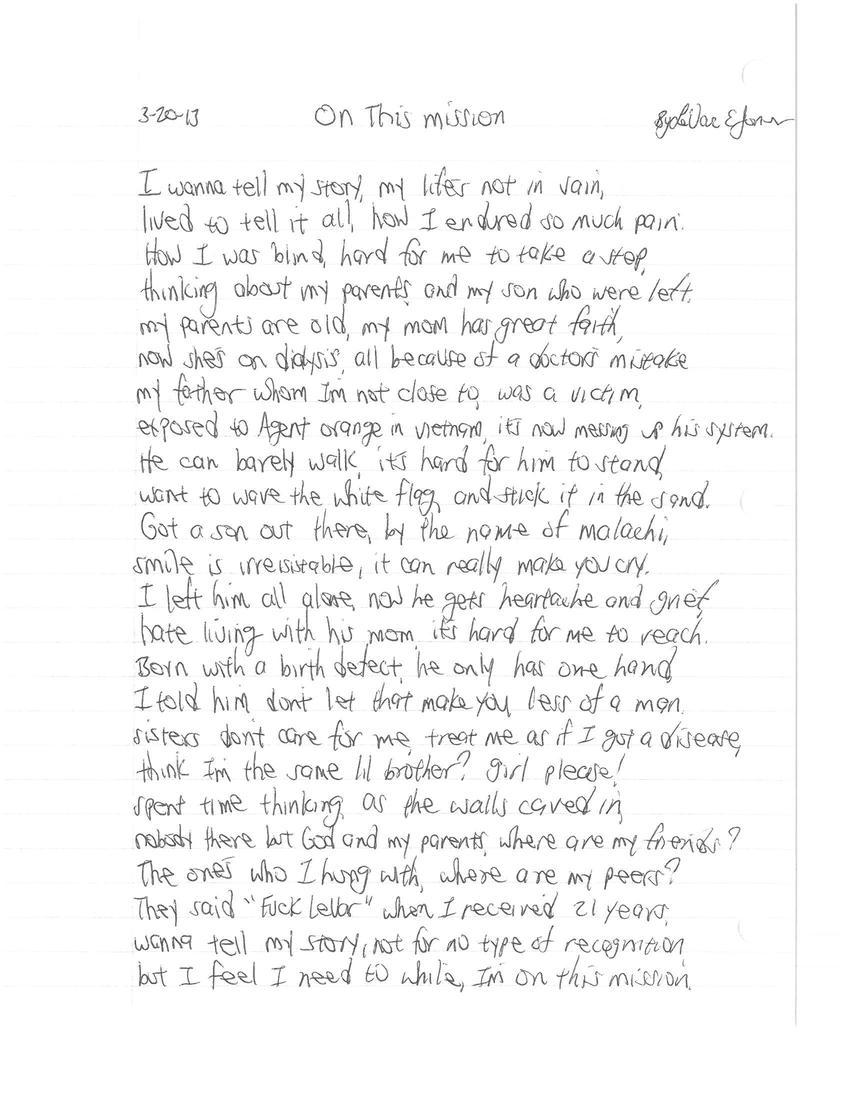 3-20-13 On This mission
I wanna tell my story, my life's not in vain,
lived to tell it all, how I endured so much pain.
How I was blind, hard for me to take a step,
thinking about my parents and my son who were left.
my parents are old, my mom has great faith,
now she's on dialysis, all because of a doctor's mistake
my father whom I'm not close to, was a victim,
exposed to Agent orange in vietnam, it's now messing up his system.
He can barely walk, it's hard for him to stand,
want to wave the white flag, and stick it in the sand.
Got a son out there, by the name of malachi,
smile is irresistable, it can really make you cry.
I left him all alone, now he gets heartache and grief,
hate living with his mom, it's hard for me to reach.
Born with a birth defect, he only has one hand,
I told him, don't let that make you less of a man.
sisters don't care for me, treat me as if I got a disease,
think I'm the same lil brother? girl please!
spent time thinking, as the walls caved in,
nobody there but God and my parents, where are my friends?
The one's who I hung with, where are my peers?
They said "Fuck LeVar" when I received 21 years,
wanna tell my story, not for no type of recognition
but I feel I need to while, I'm on this mission.